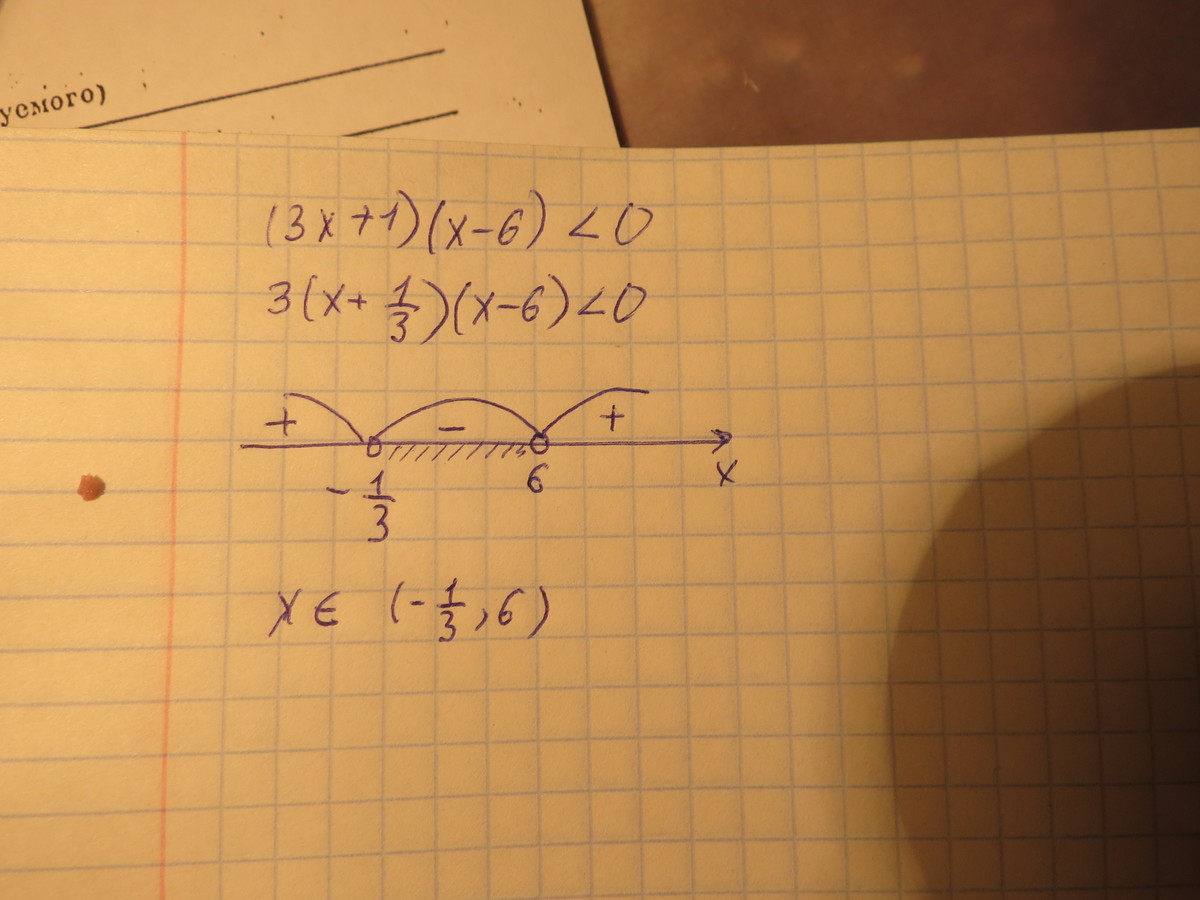 уемого)
(3x+1)(x-6)<0
3(x+1/3)(x-6)<0
+ - +
-1/3 6 x
x∈ (-1/3,6)